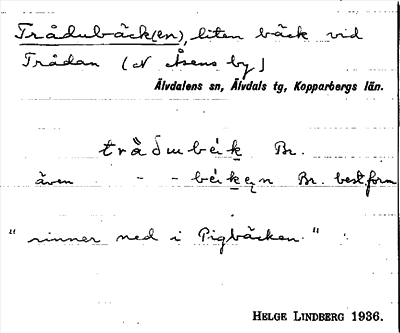 Trådubäck(en), liten bäck vid
Trådan (N Åsens by)
Älvdalens sn, Älvdals tg, Kopparbergs län.
bèi̯k Br.
även - - Br. best. form
"rinner ned i Pigbäcken."
HELGE LINDBERG 1936.